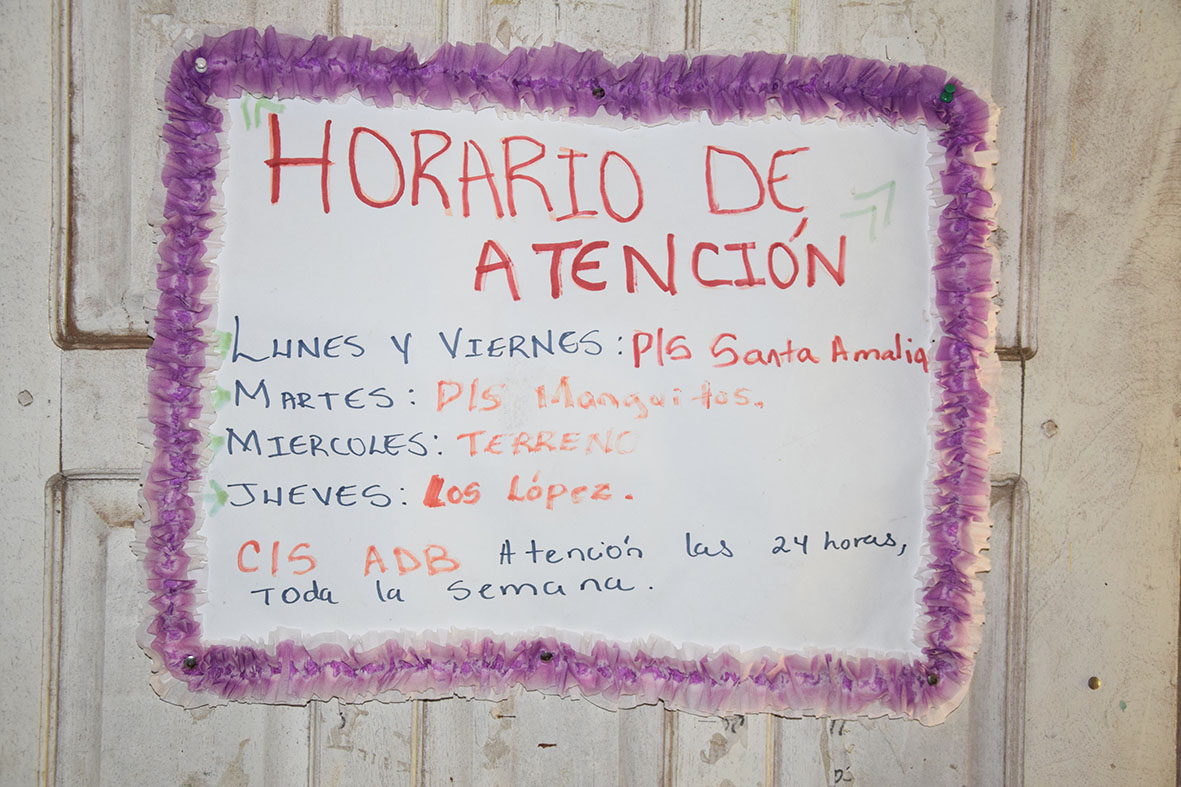 HORARIO DE
ATENCIÓN
LUNES Y VIERNES: P/S Santa Amalia
MARTES: P/S Manguitos.
MIERCOLES: TERRENO
JUEVES: Los López.
C/S ADB Atención las 24 horas,
Toda la semana.